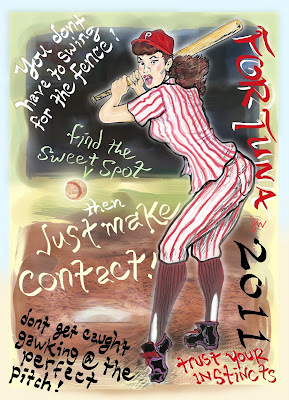 You don't
have to swing
for the fence!
find the
sweet spot
then
Just make
contact!
dont get caught
gawking @ the
perfect
pitch!
P
FORTUNA
2011
trust your
instincts